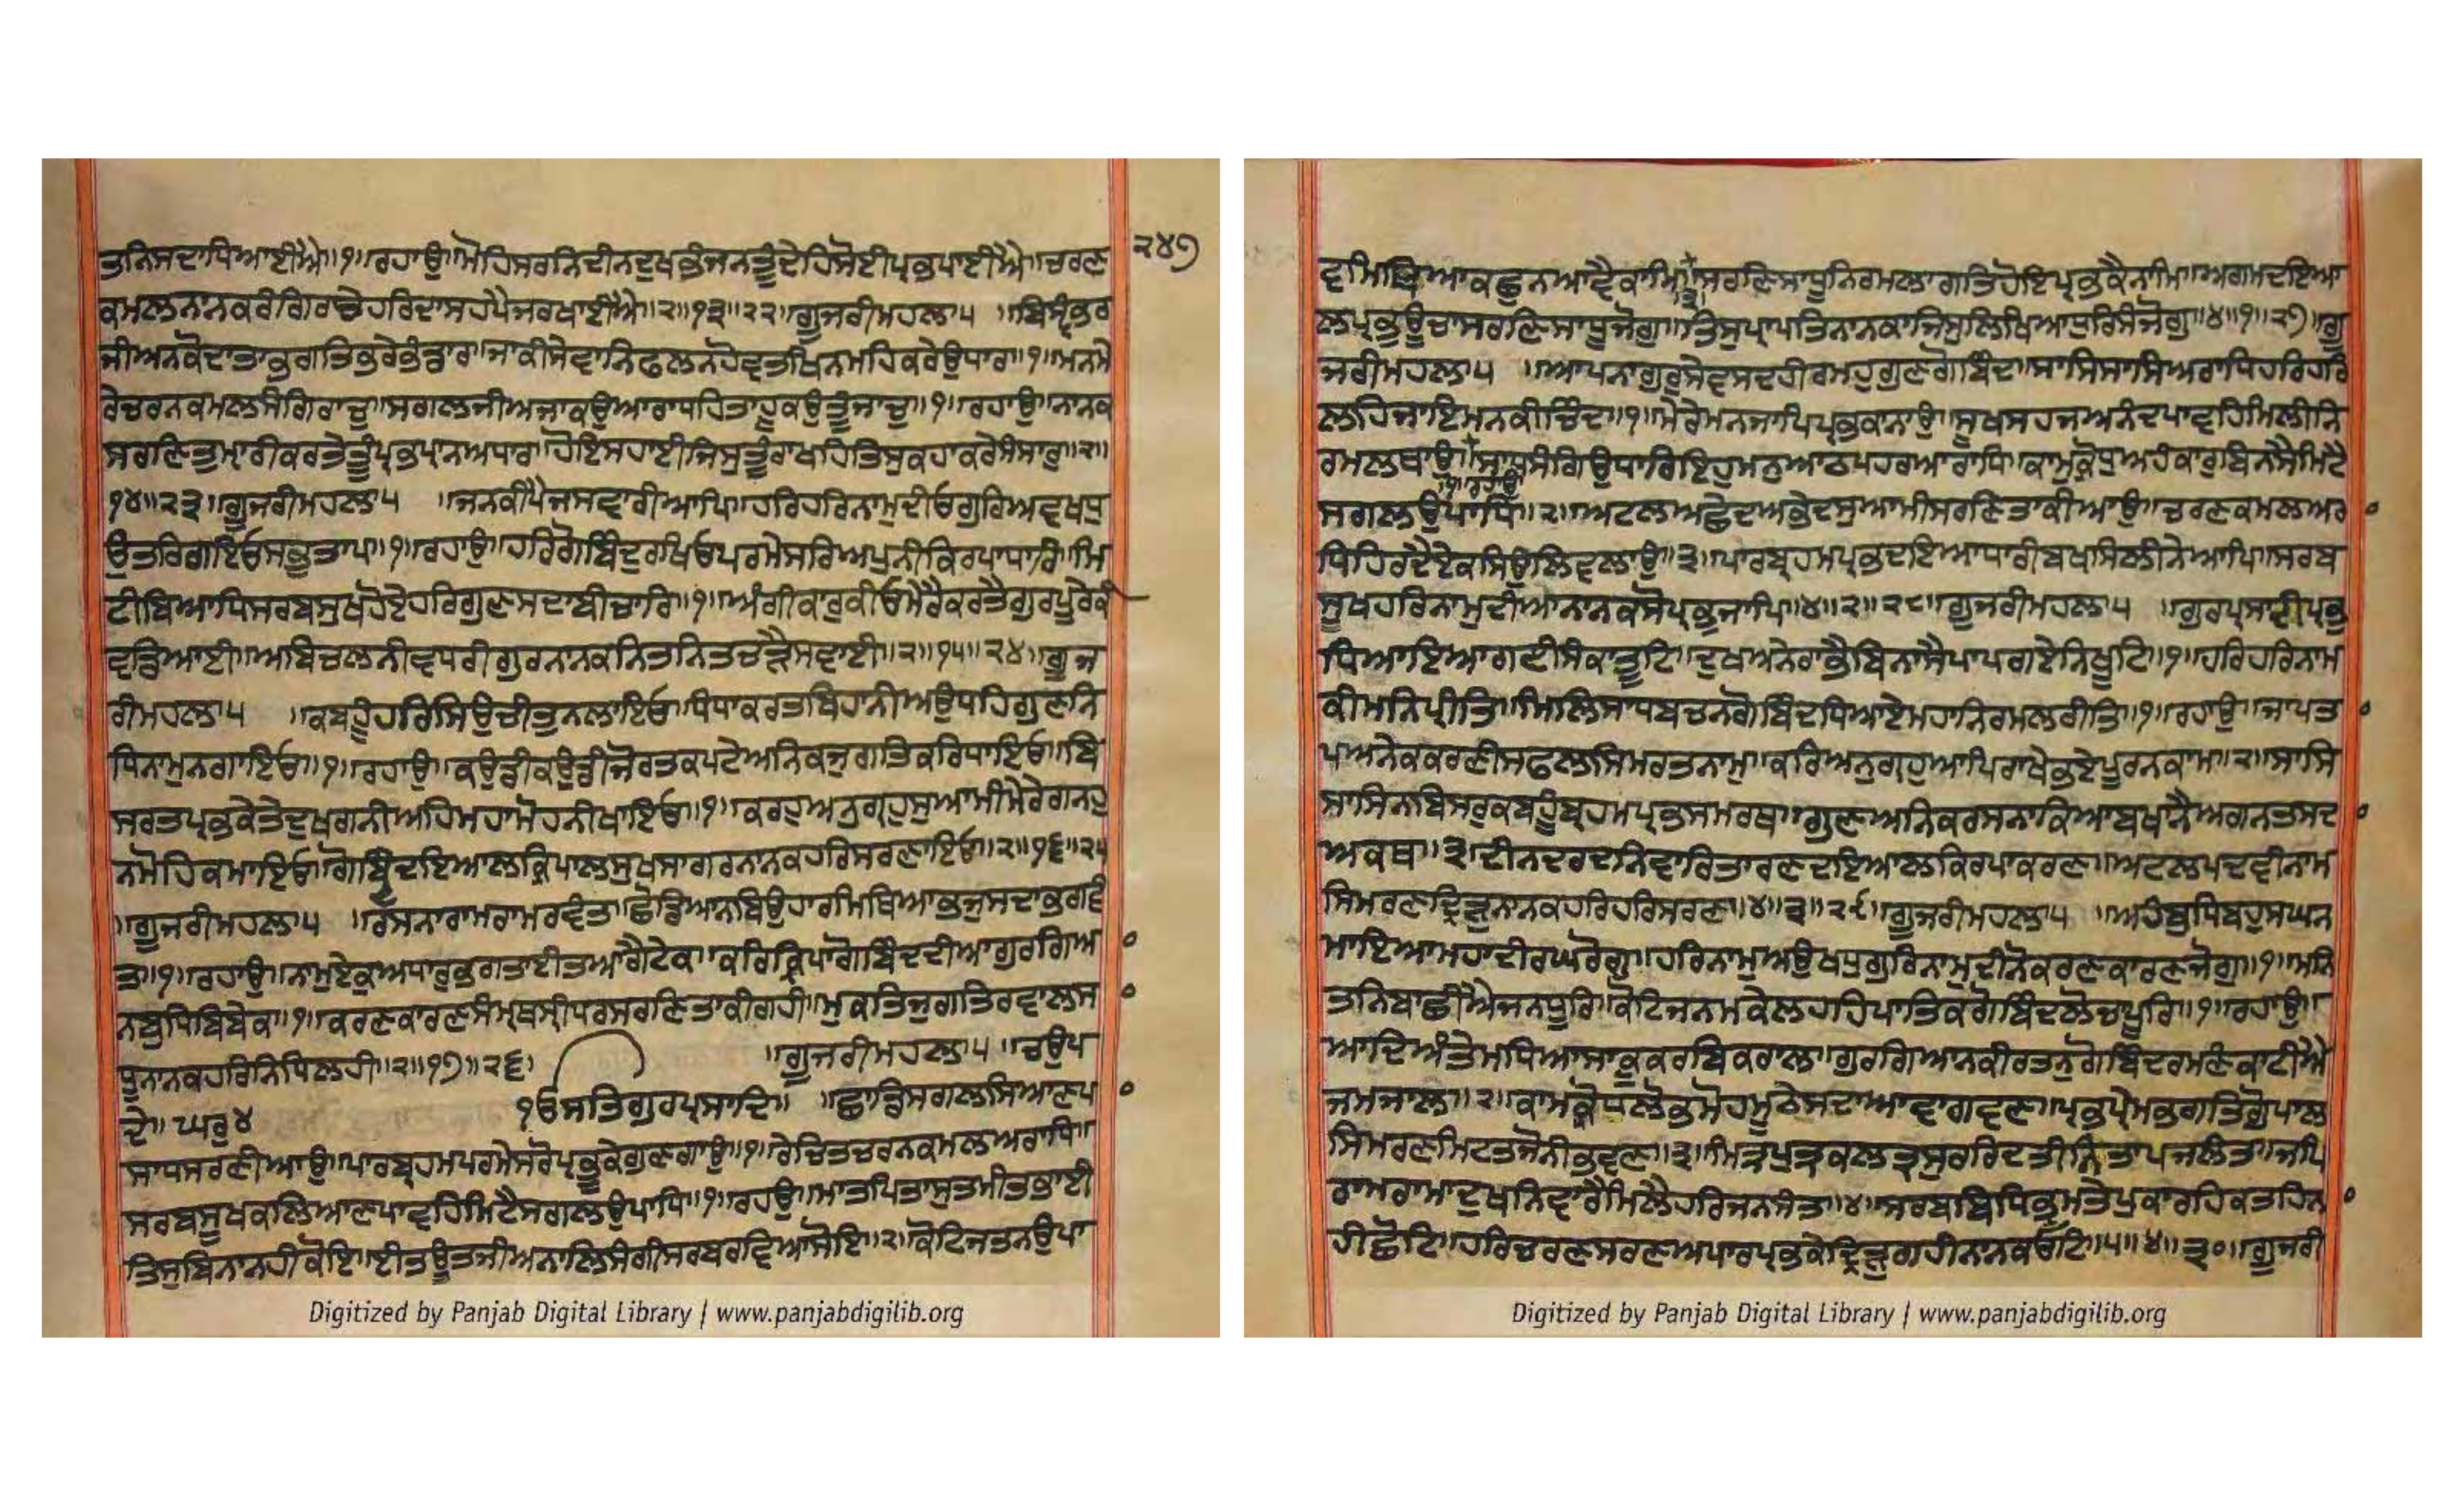 ੨੪੭
ਤੁਨਿਸਦਾਧਿਆਈਐ॥੧॥ਰਹਾਉ॥ਮੋਹਿਸਰਨਿਦੀਨਦੁਖਭੰਜਨਤੂੰਦੇਹਿਸੋਈਪ੍ਰਭਪਾਈਐ॥ਚਰਣ
ਕਮਲਨਾਨਕਰੰਗਿਰਚੇਹਰਿਦਾਸਹਪੈਜਰਖਾਈਐ॥੨॥੧੩॥੨੨॥ਗੂਜਰੀਮਹਲਾ੫ ॥ਬਿਸ੍ਵੰਭਰ
ਜੀਅਨਕੋਦਾਤਾਭਗਤਿਭਰੇਭੰਡਾਰ॥ਜਾਕੀਸੇਵਾਨਿਫਲਨਹੋਵਤਖਿਨਮਹਿਕਰੇਉਧਾਰ॥੧॥ਮਨਮੇ
ਰੇਚਰਨਕਮਲਸੰਗਿਰਾਚੁ॥ਸਗਲਜੀਅਜਾਕਉਆਰਾਧਹਿਤਾਹੂਕਉਤੂੰਜਾਚੁ॥੧॥ਰਹਾਉ॥ਨਾਨਕ
ਸਰਣਿਤੁਮ੍ਹਾਰੀਕਰਤੇਤੂੰਪ੍ਰਭਪ੍ਰਾਨਅਧਾਰ॥ਹੋਇਸਹਾਈਜਿਸੁਤੂੰਰਾਖਹਿਤਿਸੁਕਹਾਕਰੇਸੰਸਾਰੁ॥੨॥
੧੪॥੨੩॥ਗੂਜਰੀਮਹਲਾ੫ ॥ਜਨਕੀਪੈਜਸਵਾਰੀਆਪਿ॥ਹਰਿਹਰਿਨਾਮੁਦੀਓਗੁਰਿਅਵਖਧੁ
ਉਤਰਿਗਇਓਸਭੁਤਾਪ॥੧॥ਰਹਾਉ॥ਹਰਿਗੋਬਿੰਦੁਰਖਿਓਪਰਮੇਸਰਿਅਪੁਨੀਕਿਰਪਾਧਾਰਿ॥ਮਿ
ਟੀਬਿਆਧਿਸਰਬਸੁਖਹੋਏਹਰਿਗੁਣਸਦਾਬੀਚਾਰਿ॥੧॥ਅੰਗੀਕਾਰੁਕੀਓਮੇਰੈਕਰਤੈਗੁਰਪੂਰੇਕੀ
ਵਡਿਆਈ॥ਅਬਿਚਲਨੀਵਧਰੀਗੁਰਨਾਨਕਨਿਤਨਿਤਚੜੈਸਵਾਈ॥੨॥੧੫॥੨੪॥ਗੂਜ
ਰੀਮਹਲਾ੫ ॥ਕਬਹੂਹਰਿਸਿਉਚੀਤੁਨਲਾਇਓ॥ਧੰਧਾਕਰਤਬਿਹਾਨੀਅਉਧਹਿਗੁਣਨਿ
ਧਿਨਾਮੁਨਗਾਇਓ॥੧॥ਰਹਾਉ॥ਕਉਡੀਕਉਡੀਜੋਰਤਕਪਟੇਅਨਿਕਜੁਗਤਿਕਰਿਧਾਇਓ॥ਬਿ
ਸਰਤਪ੍ਰਭਕੇਤੇਦੁਖਗਨੀਅਹਿਮਹਾਮੋਹਨੀਖਾਇਓ॥੧॥ਕਰਹੁਅਨੁਗ੍ਰਹੁਸੁਆਮੀਮੇਰੇਗਨਹੁ
ਨਮੋਹਿਕਮਾਇਓ॥ਗੋਬਿੰਦਦਇਆਲਕ੍ਰਿਪਾਲਸੁਖਸਾਗਰਨਾਨਕਹਰਿਸਰਣਾਇਓ॥੨॥੧੬॥੨੫
॥ਗੂਜਰੀਮਹਲਾ੫ ॥ਰਸਨਾਰਾਮਰਾਮਰਵੰਤ॥ਛੋਡਿਆਨਬਿਉਹਾਰਮਿਥਿਆਭਜੁਸਦਾਭਗਵੰ
ਤ॥੧॥ਰਹਾਉ॥ਨਾਮੁਏਕੁਅਧਾਰੁਭਗਤਾਈਤਆਗੈਟੇਕ॥ਕਰਿਕ੍ਰਿਪਾਗੋਬਿੰਦਦੀਆਗੁਰਗਿਆ
ਨਬੁਧਿਬਿਬੇਕ॥੧॥ਕਰਣਕਾਰਣਸੰਮ੍ਰਥਸ੍ਰੀਧਰਸਰਣਿਤਾਕੀਗਹੀ॥ਮੁਕਤਿਜੁਗਤਿਰਵਾਲਸਾ
ਧੂਨਾਨਕਹਰਿਨਿਧਿਲਹੀ॥੨॥੧੭॥੨੬॥ ॥ਗੂਜਰੀਮਹਲਾ੫ ॥ਚਉਪ
ਦੇ॥ਘਰੁ੪ ੧ਓਸਤਿਗੁਰਪ੍ਰਸਾਦਿ॥ ॥ਛਾਡਿਸਗਲਸਿਆਣਪ
ਸਾਧਸਰਣੀਆਉ॥ਪਾਰਬ੍ਰਹਮਪਰਮੇਸਰੋਪ੍ਰਭੂਕੇਗੁਣਗਾਉ॥੧॥ਰੇਚਿਤਚਰਨਕਮਲਅਰਾਧਿ॥
ਸਰਬਸੂਖਕਲਿਆਣਪਾਵਹਿਮਿਟੈਸਗਲਉਪਾਧਿ॥੧॥ਰਹਉ॥ਮਾਤਪਿਤਾਸੁਤਮੀਤਭਾਈ
ਤਿਸੁਬਿਨਾਨਹੀਕੋਇ॥ਈਤਊਤਜੀਅਨਾਲਿਸੰਗੀਸਰਬਰਵਿਆਸੋਇ॥੨॥ਕੋਟਿਜਤਨਉਪਾ
Digitized by Panjab Digital Library | www.panjabdigilib.org
ਵਮਿਥਿਆਕਛੁਨਆਵੈਕਾਮਿ॥ਸਰਣਿਸਾਧੂਨਿਰਮਲਾਗਤਿਹੋਇਪ੍ਰਭਕੈਨਾਮਿ॥ਅਗਮਦਇਆ
ਲਪ੍ਰਭੂਊਚਾਸਰਣਿਸਾਧੂਜੋਗੁ॥ਤਿਸੁਪਰਾਪਤਿਨਾਨਕਾਜਿਸੁਲਿਖਿਆਧੁਰਿਸੰਜੋਗੁ॥੪॥੧॥੨੭॥ਗੂ
ਜਰੀਮਹਲਾ੫ ॥ਆਪਨਾਗੁਰੁਸੇਵਸਦਹੀਰਮਹੁਗੁਣਗੋਬਿੰਦ॥ਸਾਸਿਸਾਸਿਅਰਾਧਿਹਰਿਹਰਿ
ਲਹਿਜਾਇਮਨਕੀਚਿੰਦ॥੧॥ਮੇਰੇਮਨਜਾਪਿਪ੍ਰਭਕਾਨਾਉ॥ਸੂਖਸਹਜਅਨੰਦਪਾਵਹਿਮਿਲੀਨਿ
ਰਮਲਥਾਉ॥ਸਾਧਸੰਗਿਉਧਾਰਿਇਹੁਮਨੁਆਠਪਹਰਆਰਾਧਿ॥ਕਾਮੁਕ੍ਰੋਧੁਅਹੰਕਾਰੁਬਿਨਸੈਮਿਟੈ
॥੧॥ਰਹਾਉ
ਸਗਲਉਪਾਧਿ॥੨॥ਅਟਲਅਛੇਦਅਭੇਦਸੁਆਮੀਸਰਣਿਤਾਕੀਆਉ॥ਚਰਣਕਮਲਅਰਾ
ਧਿਹਿਰਦੈਏਕਸਿਉਲਿਵਲਾਉ॥੩॥ਪਾਰਬ੍ਰਹਮਪ੍ਰਭਦਇਆਧਾਰੀਬਖਸਿਲੀਨੇਆਪਿ॥ਸਰਬ
ਸੁਖਹਰਿਨਾਮੁਦੀਆਨਾਨਕਸੋਪ੍ਰਭੁਜਾਪਿ॥੪॥੨॥੨੮॥ਗੂਜਰੀਮਹਲਾ੫ ॥ਗੁਰਪ੍ਰਸਾਦੀਪ੍ਰਭੁ
ਧਿਆਇਆਗਈਸੰਕਾਤੂਟਿ॥ਦੁਖਅਨੇਰਾਭੈਬਿਨਾਸੈਪਾਪਗਏਨਿਖੂਟਿ॥੧॥ਹਰਿਹਰਿਨਾਮ
ਕੀਮਨਿਪ੍ਰੀਤਿ॥ਮਿਲਿਸਾਧਬਚਨਗੋਬਿੰਦਧਿਆਏਮਹਾਨਿਰਮਲਰੀਤਿ॥੧॥ਰਹਾਉ॥ਜਾਪਤਾ
ਪਅਨੇਕਕਰਣੀਸਫਲਸਿਮਰਤਨਾਮ॥ਕਰਿਅਨੁਗ੍ਰਹੁਆਪਿਰਾਖੇਭਏਪੂਰਨਕਾਮ॥੨॥ਸਾਸਿ
ਸਾਸਿਨਾਬਿਸਰੁਕਬਹੂੰਬ੍ਰਹਮਪ੍ਰਭਸਮਰਥ॥ਗੁਣਅਨਿਕਰਸਨਾਕਿਆਬਖਾਨੈਅਗਨਤਸਦਾ
ਅਕਥ॥੩॥ਦੀਨਦਰਦਨਿਵਾਰਿਤਾਰਣਦਇਆਲਕਿਰਪਾਕਰਣ॥ਅਟਲਪਦਵੀਨਾਮ
ਸਿਮਰਣਦ੍ਰਿੜੁਨਾਨਕਹਰਿਹਰਿਸਰਣ॥੪॥੩॥੨੯॥ਗੂਜਰੀਮਹਲਾ੫ ॥ਅਹੰਬੁਧਿਬਹੁਸਘਨ
ਮਾਇਆਮਹਾਦੀਰਘਰੋਗੁ॥ਹਰਿਨਾਮੁਅਉਖਧੁਗੁਰਿਨਾਮੁਦੀਨੋਕਰਣਕਾਰਣਜੋਗੁ॥੧॥ਮਨਿ
ਤਨਿਬਾਛੀਐਜਨਧੂਰਿ॥ਕੋਟਿਜਨਮਕੇਲਹਹਿਪਾਤਿਕਗੋਬਿੰਦਲੋਚਪੂਰਿ॥੧॥ਰਹਾਉ॥
ਆਦਿਅੰਤੇਮਧਿਆਸਾਕੂਕਰਬਿਕਰਾਲ॥ਗੁਰਗਿਆਨਕੀਰਤਨੁਗੋਬਿੰਦਰਮਣੰਕਾਟੀਐ
ਜਮਜਾਲ॥੨॥ਕਾਮਕ੍ਰੋਧਲੋਭਮੋਹਮੂਠੇਸਦਾਆਵਾਗਵਣ॥ਪ੍ਰਭਪ੍ਰੇਮਭਗਤਿਗੁੋਪਾਲ
ਸਿਮਰਣਮਿਟਤਜੋਨੀਭਵਣ॥੩॥ਮਿਤ੍ਰਪੁਤ੍ਰਕਲਤ੍ਰਸੁਰਰਿਦਤੀਨਿਤਾਪਜਲੰਤ॥ਜਪਿ
ਰਾਮਰਾਮਾਦੁਖਨਿਵਾਰੈਮਿਲੈਹਰਿਜਨਸੰਤ॥੪॥ਸਰਬਬਿਧਿਭ੍ਰਮਤੇਪੁਕਾਰਹਿਕਤਹਿਨਾ
ਹੀਛੋਟਿ॥ਹਰਿਚਰਣਸਰਣਅਪਾਰਪ੍ਰਭਕੇਦ੍ਰਿੜੁਗਹੀਨਾਨਕਓਟਿ॥੫॥੪॥੩੦॥ਗੂਜਰੀ
Digitized by Panjab Digital Library | www.panjabdigilib.org